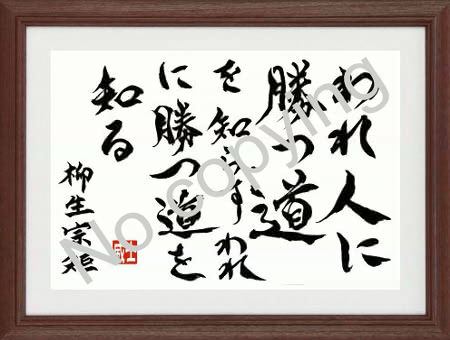 われ人に
勝つ道
を知らずわれ
に勝つ道を
知る
柳生宗矩
No copying